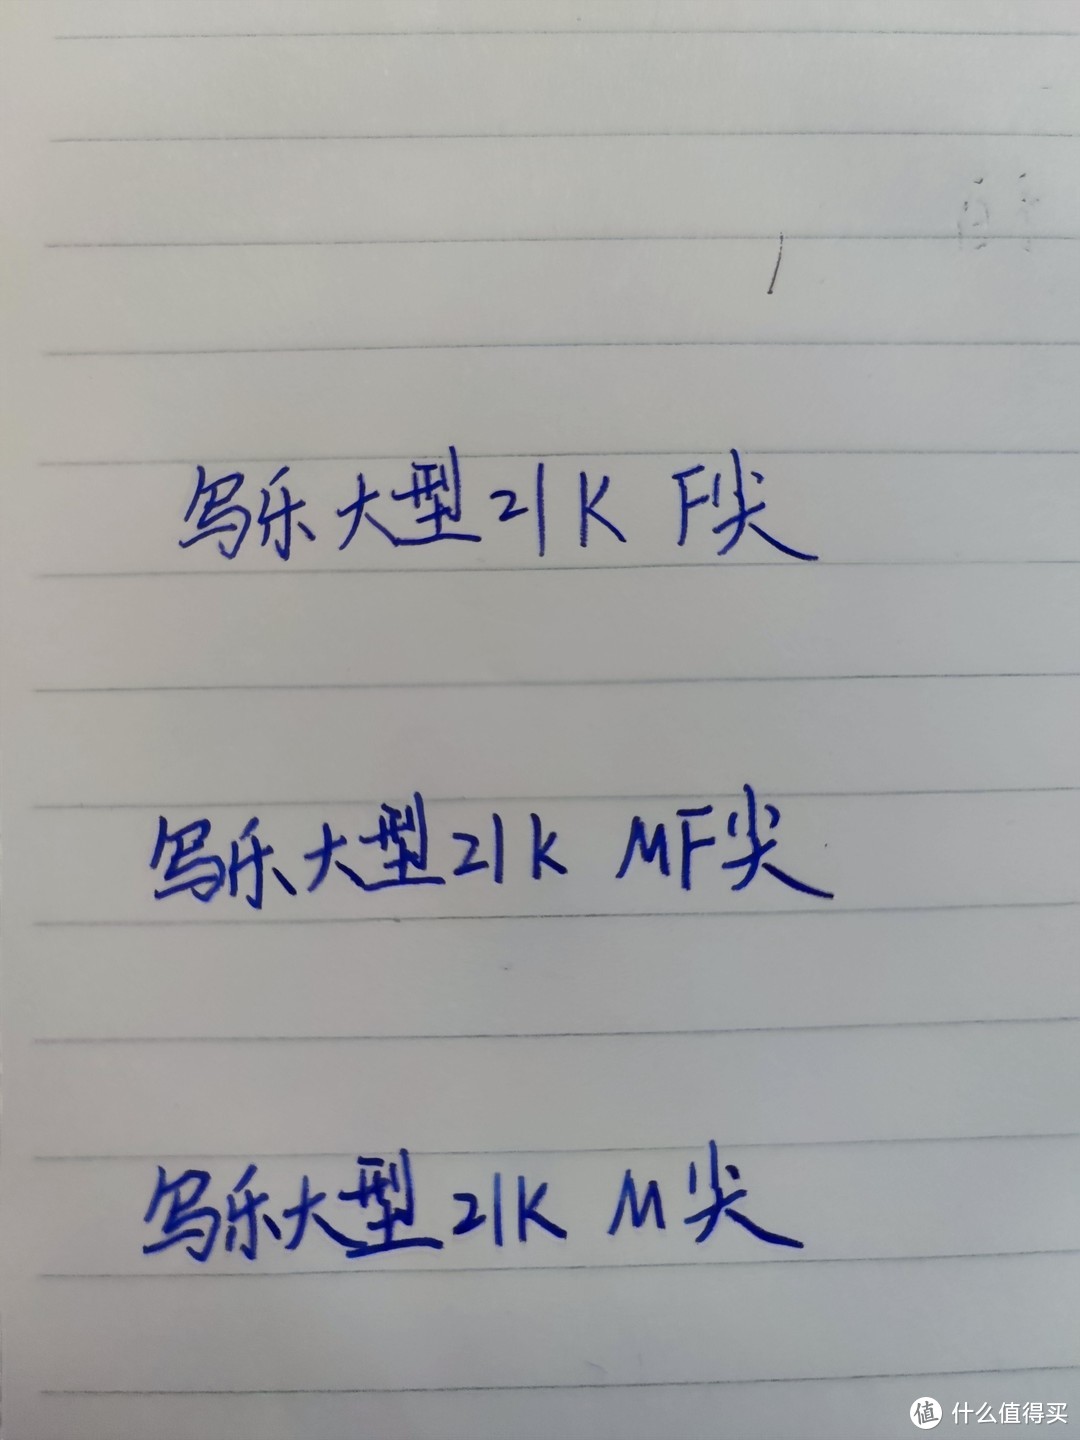 写乐大型21K F尖
写乐大型21K MF尖
写乐大型21K M尖
值 什么值得买